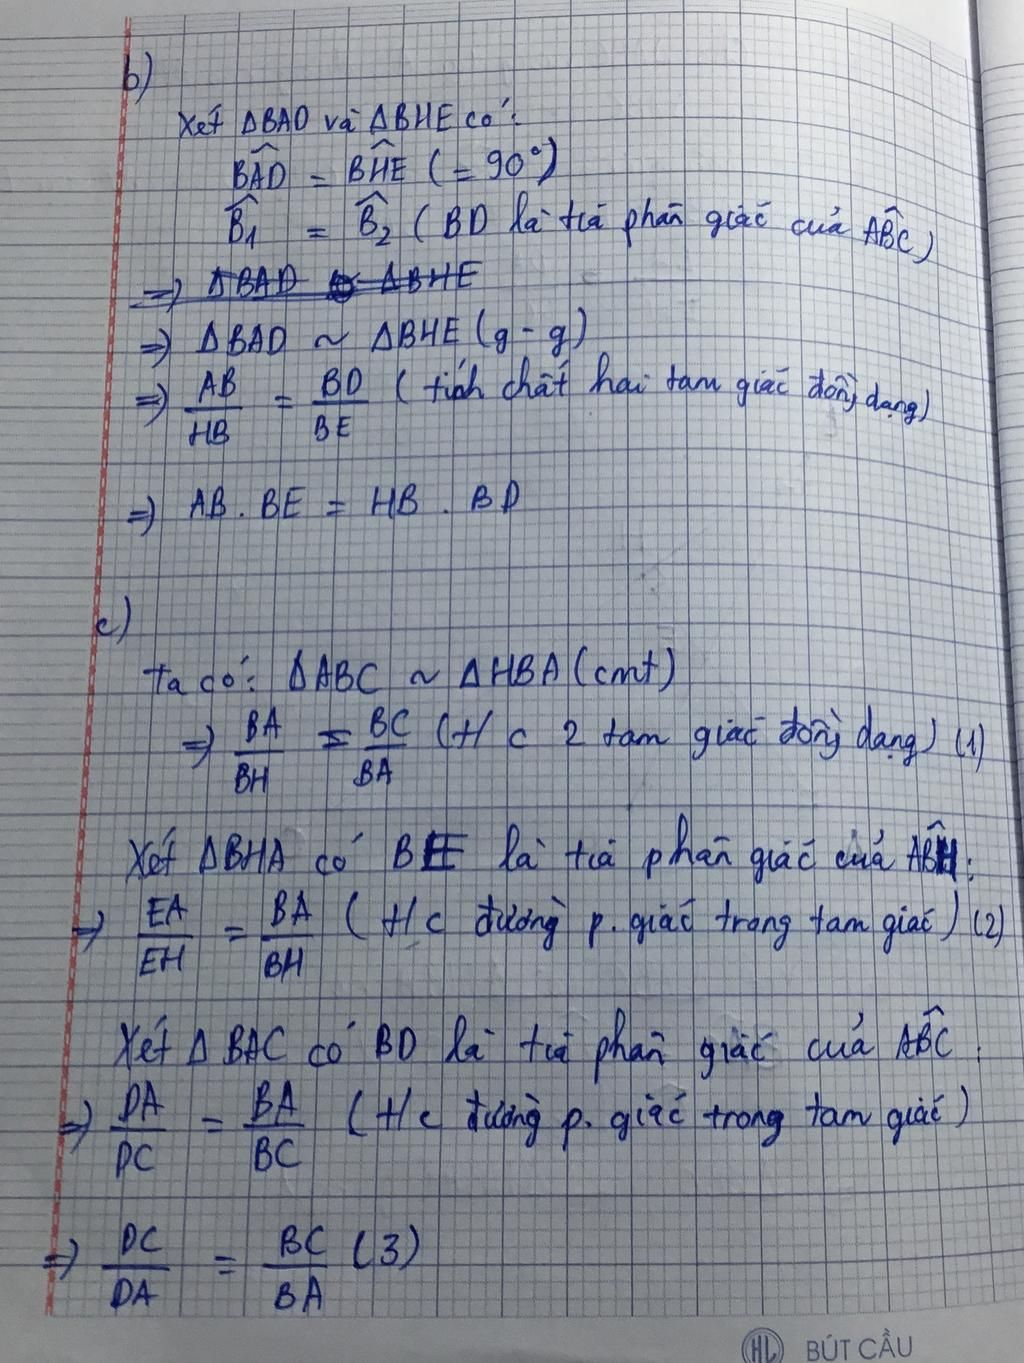 b)
Xét ΔBAD và ΔBHE có:
BAD̂ = BHÊ (= 90°)
B̂1 = B̂2 (BD là tia phân giác của AB̂C)
=> ΔBAD ~ ΔBHE
=> ΔBAD ~ ΔBHE (g - g)
=> AB/HB = BD/BE (tính chất hai tam giác đồng dạng)
=> AB . BE = HB . BD
c)
Ta có: ΔABC ~ ΔHBA (cmt)
=> BA/BH = BC/BA (t/c 2 tam giác đồng dạng) (1)
Xét ΔBHA có BE là tia phân giác của AB̂H:
=> EA/EH = BA/BH (t/c đường p. giác trong tam giác) (2)
Xét ΔBAC có BD là tia phân giác của AB̂C:
=> DA/DC = BA/BC (t/c đường p. giác trong tam giác)
=> DC/DA = BC/BA (3)
HL BÚT CẦU